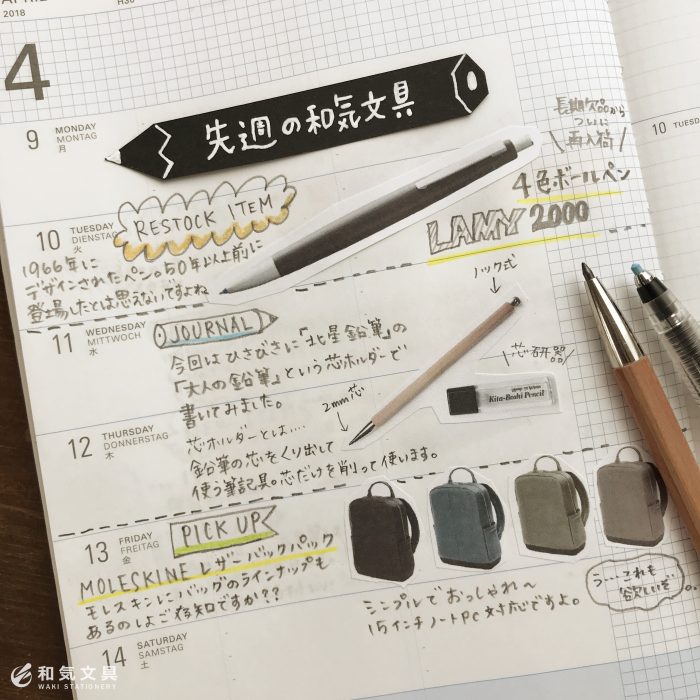 2018
H30
4
9 MONDAY
MONTAG
月
先週の和気文具
長期欠品から
ついに
再入荷
10 TUESD
10 TUESDAY
DIENSTAG
火
RESTOCK ITEM
4色ボールペン
LAMY 2000
1966年に
デザインされたペン。50年以上前に
登場したとは思えないですよね
11 WEDNESDAY
MITTWOCH
水
JOURNAL
今回はひさびさに「北星鉛筆」の
「大人の鉛筆」という芯ホルダーで
書いてみました。
ノック式
芯研器
Kita-Boshi Pencil
2mm芯
12 THURSDAY
DONNERSTAG
木
芯ホルダーとは....
鉛筆の芯をくり出して
使う筆記具。芯だけを削って使います。
13 FRIDAY
FREITAG
金
PICK UP
MOLESKINE レザーバックパック
モレスキンにバッグのラインナップも
あるのしょご存知ですか??
シンプルでおっしゃれ〜
15インチノートPC対応ですよ。
う...これも
欲しいぞ。。
14 SATURDAY
SAMSTAG
土
和気文具
WAKI STATIONERY